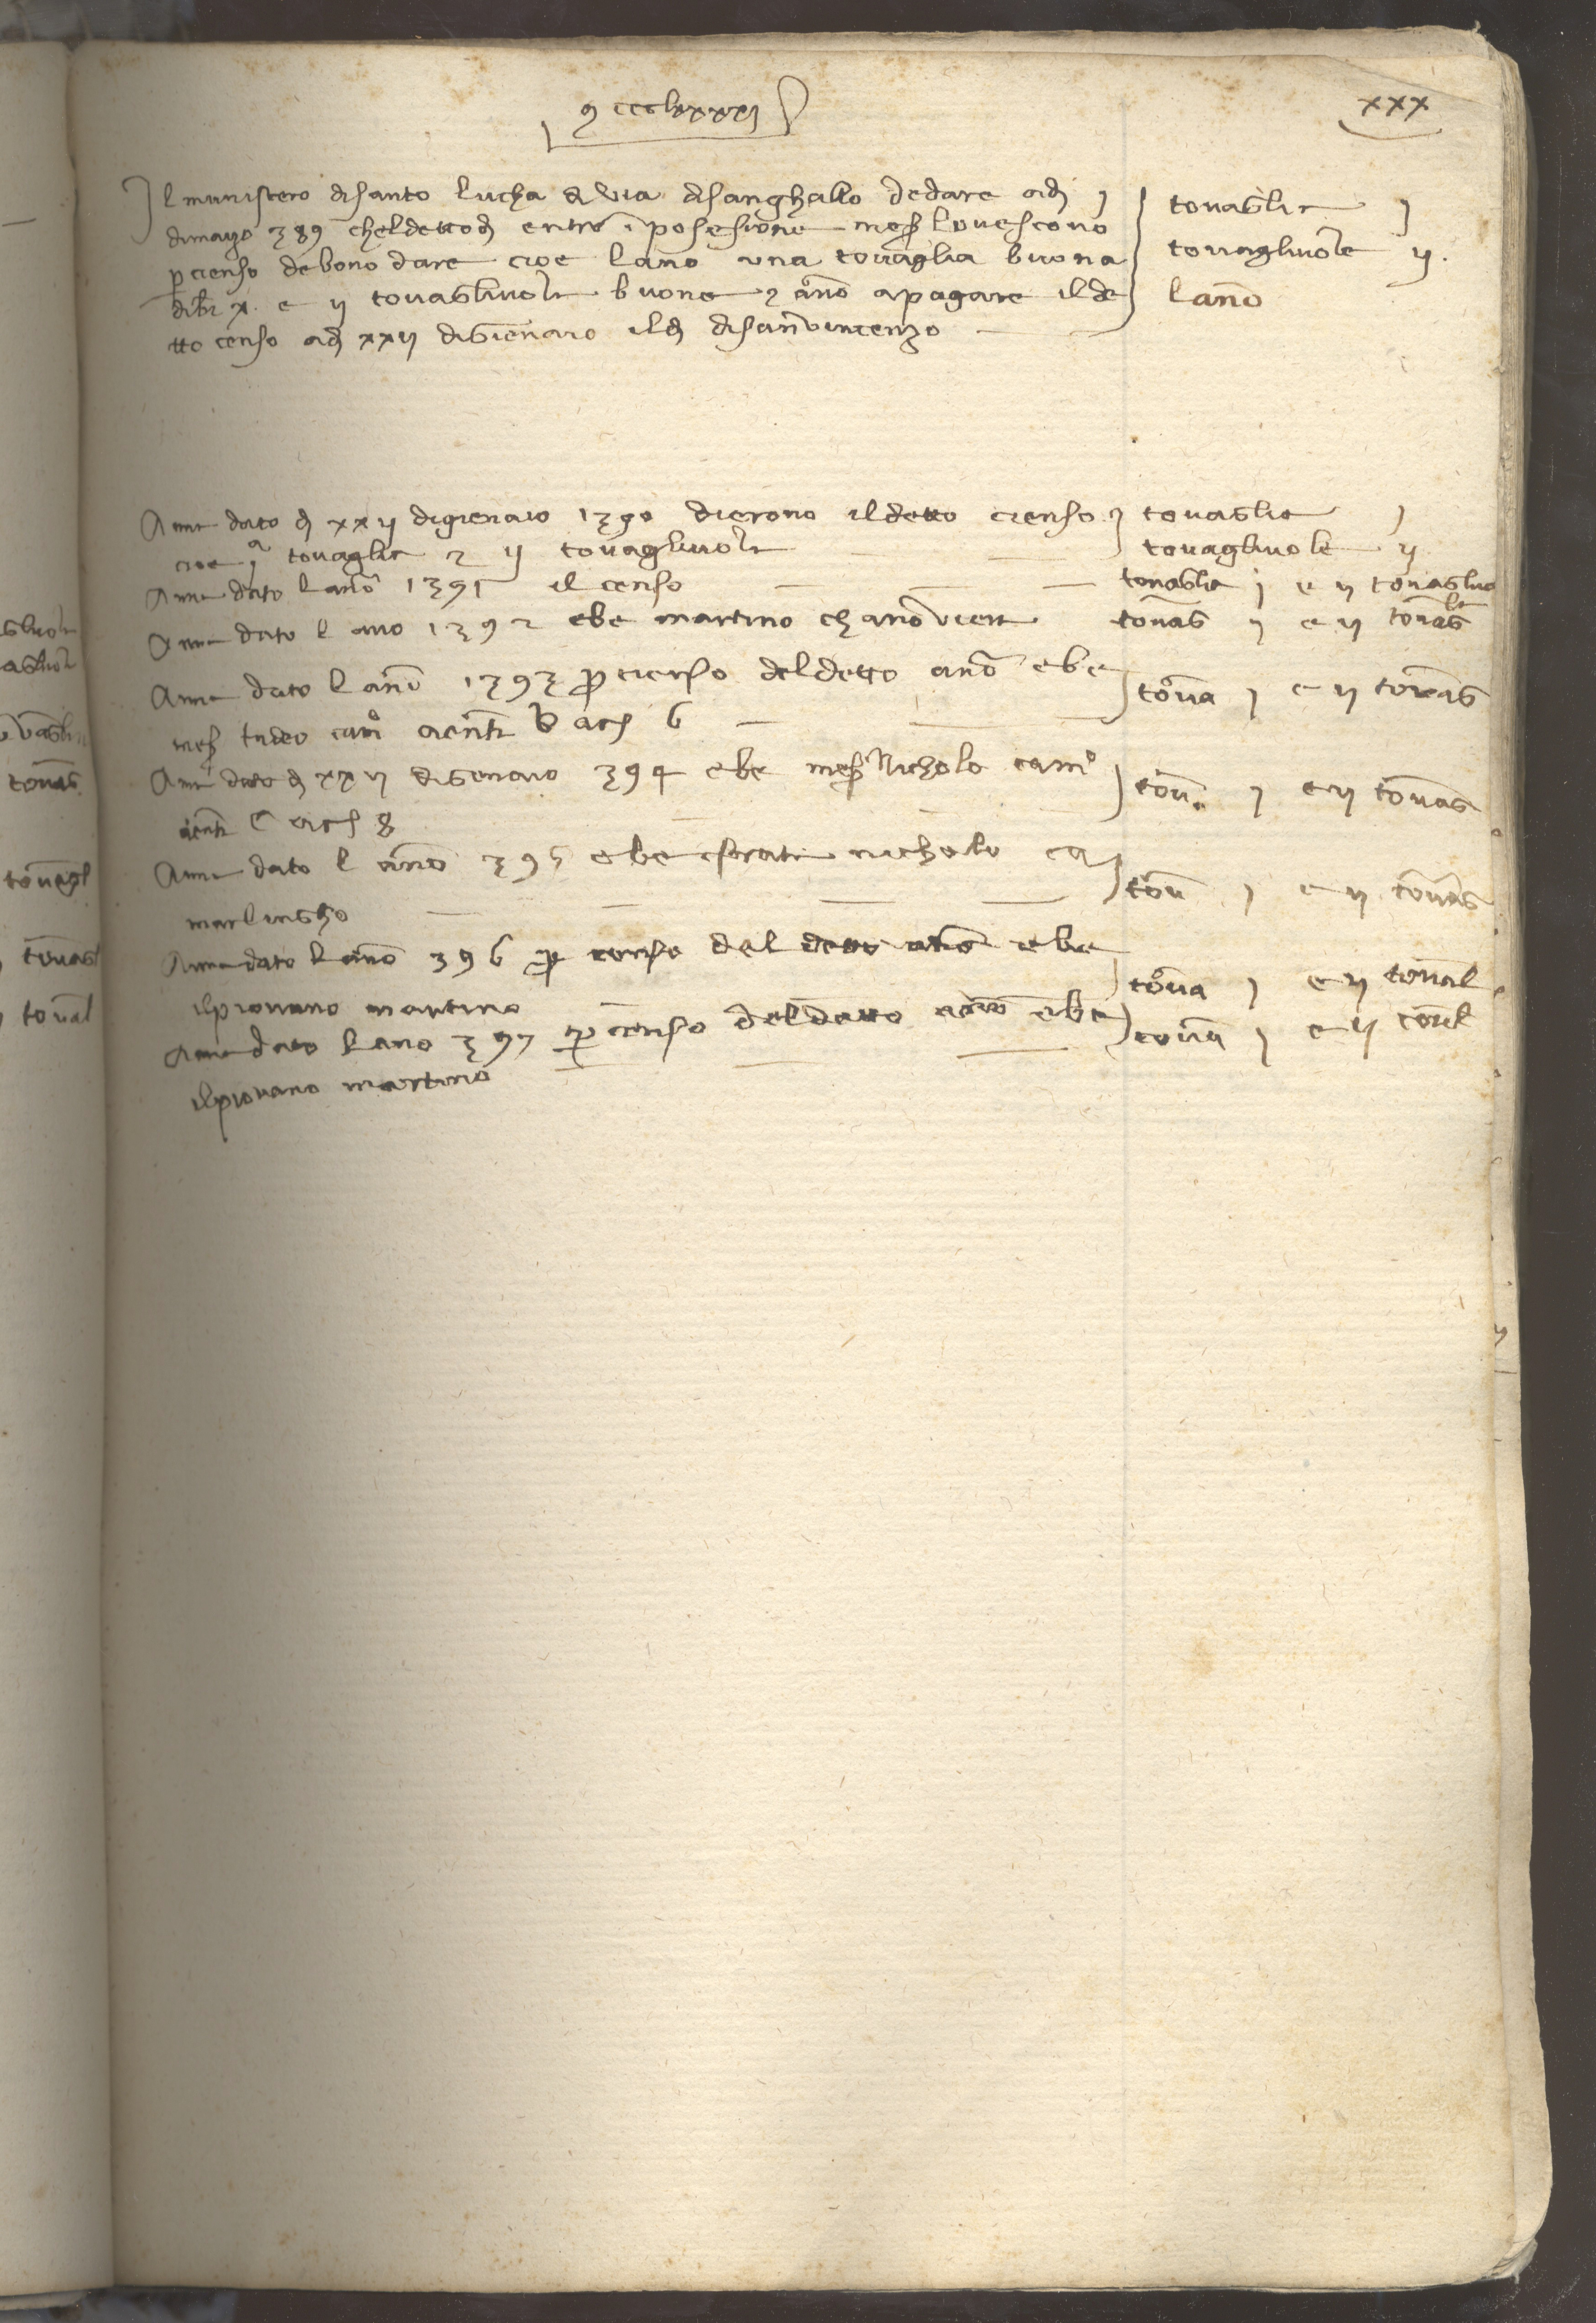 xxx
Il munistero di santo lucha di via di sanghallo de dare adi j
di magio 389 chel detto di entrò i posesione mess lo vescovo
p cienso debono dare cioe lano una tovaglia buona
di br x. e ij tovagliuole buone e ano a pagare il de
tto censo adi xxij di gienaio il di di san vincenzo
tovaglie j
tovagliuole ij.
lano
Ane dato di xxij di gienaio 1390 dierono il detto cienso
cioe jª tovaglia e ij tovagliuole
tovaglie j
tovagliuole ij
Ane dato lano 1391 il censo
tovaglie j e ij tovagliuo
Ane dato lano 1392 ebe martino
tovag j e ij tovag
Ane dato lano 1393 p cienso del detto ano ebe
mess camo 6
tova j e ij tovag
Ane dato di xxij di genaio 394 ebe mess Nicholo camo
8
tov. j e ij tovag
Ane dato lano 395 ebe nicholo
marlingho
tov j e ij tovag
Ane dato lano 396 p censo del detto ano ebe
il piovano martino
tova j e ij toval
Ane dato lano 397 p censo del detto ano ebe
il piovano martino
tova j e ij tovl
tovag
tovagl
tovag
toval